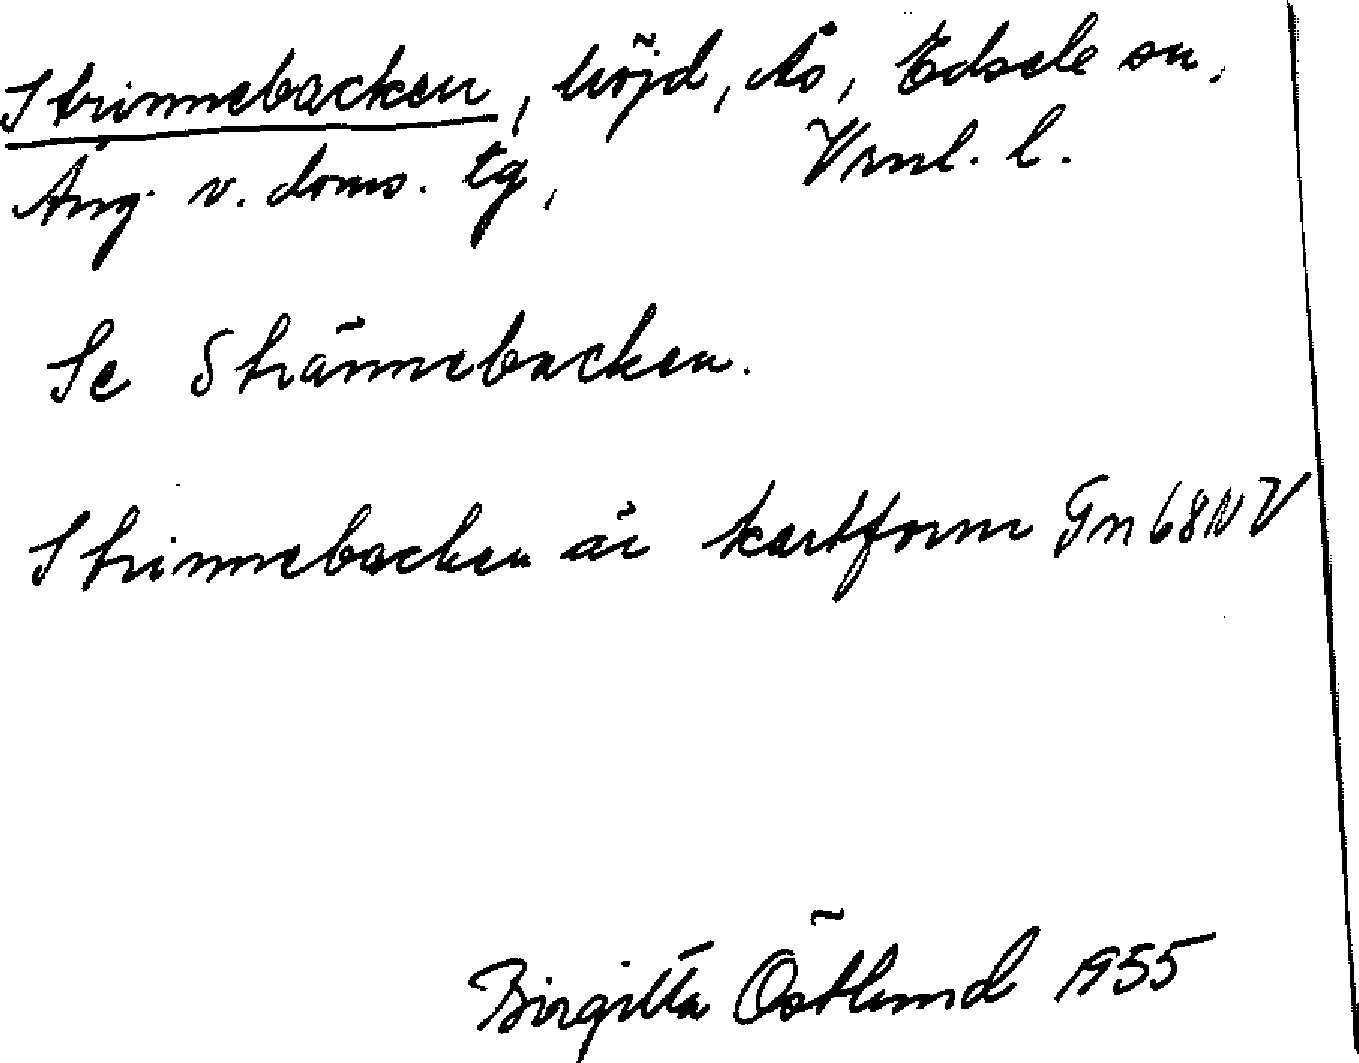 Strinnebacken, höjd, Ås, Edsele sn,
Ång. v. doms. tg, Vrnl. l.
Se Strännebacken.
Strinnebacken är kartform Gn 68 NV
Birgitta Östlund 1955